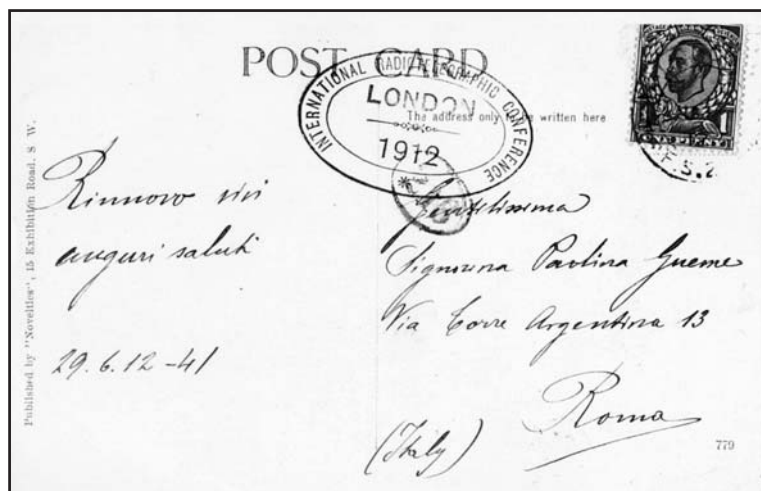 POST CARD
INTERNATIONAL RADIOTELEGRAPHIC CONFERENCE
LONDON
1912
The address only to be written here
ONE PENNY
Published by "Novelties", 15 Exhibition Road. S W.
Rinnovo vivi
auguri saluti
29.6.12 -41
Gentilissima
Signorina Paolina
Via Torre Argentina 13
Roma
(Italy)
779